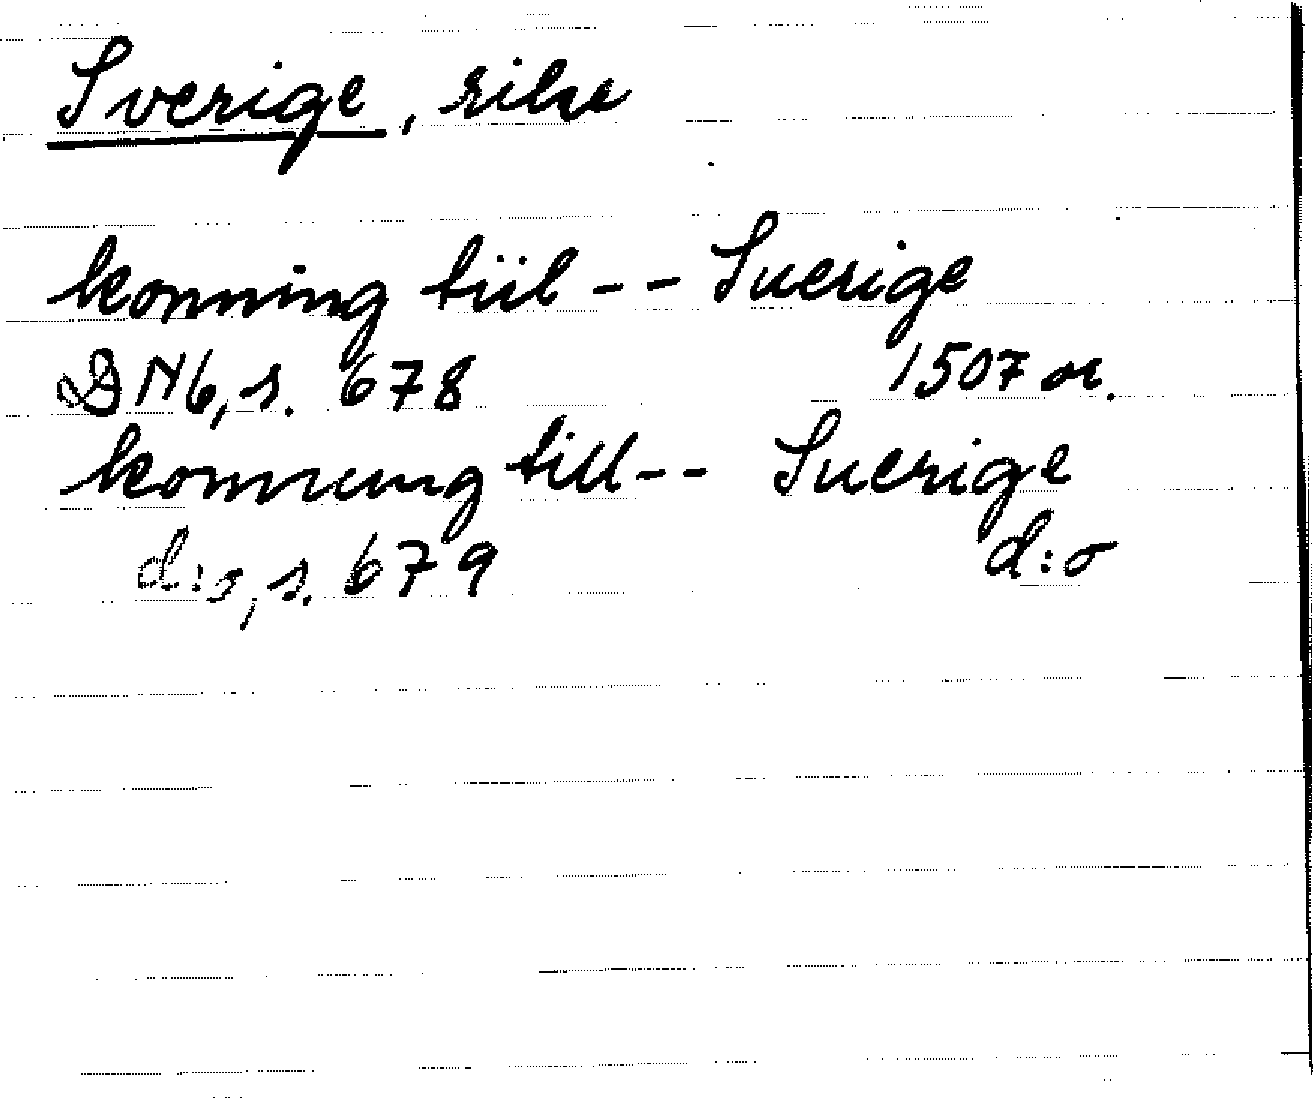 Sverige, rike
konning tiil -- Suerige
DN6, s. 678 1507 or.
konnung till -- Suerige
d:o, s. 679 d:o